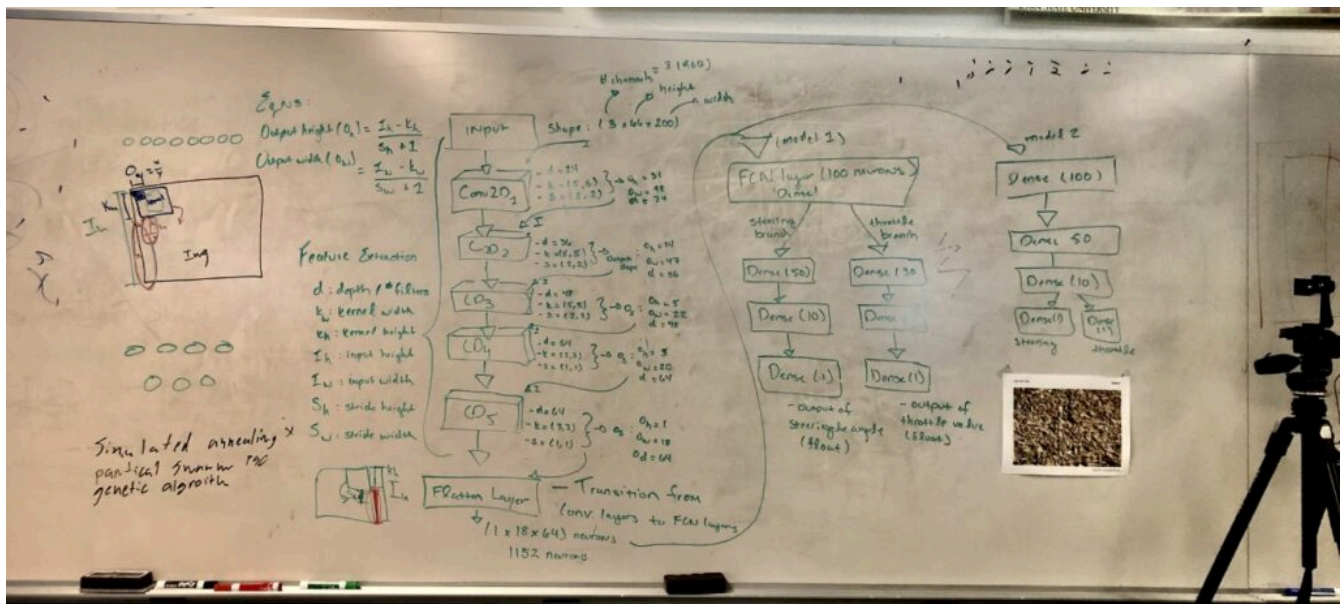 Eqns:
Output height (Oh) = Ih - kh
Sh + 1
Output width (Ow) = Iw - kw
Sw + 1
Kh
Ih
Img
Feature Extraction
d: depth / # filters
kw: kernel width
kh: kernel height
Ih: input height
Iw: input width
Sh: stride height
Sw: stride width
Simulated annealing
partical swarm
genetic algroith
# channels = 3 (RGB)
height
width
INPUT
Shape: (3 x 66 x 200)
Conv2D1
- d = 24
- k = (5,5)
- s = (2,2)
Oh = 31
Ow = 98
d = 24
I
C2D2
- d = 36
- k = (5,5)
- s = (2,2)
Output
shape
Oh = 14
Ow = 47
d = 36
I
CD3
- d = 48
- k = (5,5)
- s = (2,2)
Os:
Oh = 5
Ow = 22
d = 48
I
CD4
- d = 64
- k = (3,3)
- s = (1,1)
Os:
Oh = 3
Ow = 20
d = 64
I
CD5
- d = 64
- k = (3,3)
- s = (1,1)
Os:
Oh = 1
Ow = 18
Od = 64
Ih
Flatten Layer
— Transition from
conv. layers to FCN layers
(1 x 18 x 64) neurons
1152 neurons
(model 1)
FCN layer (100 neurons)
'Dense'
steering
branch
throttle
branch
Dense (50)
Dense (50)
Dense (10)
Dense (1)
Dense (1)
- output of
steering angle
(float)
- output of
throttle value
(float)
model 2
Dense (100)
Dense 50
Dense (10)
Dense (1)
Dense
(1)
steering
throttle